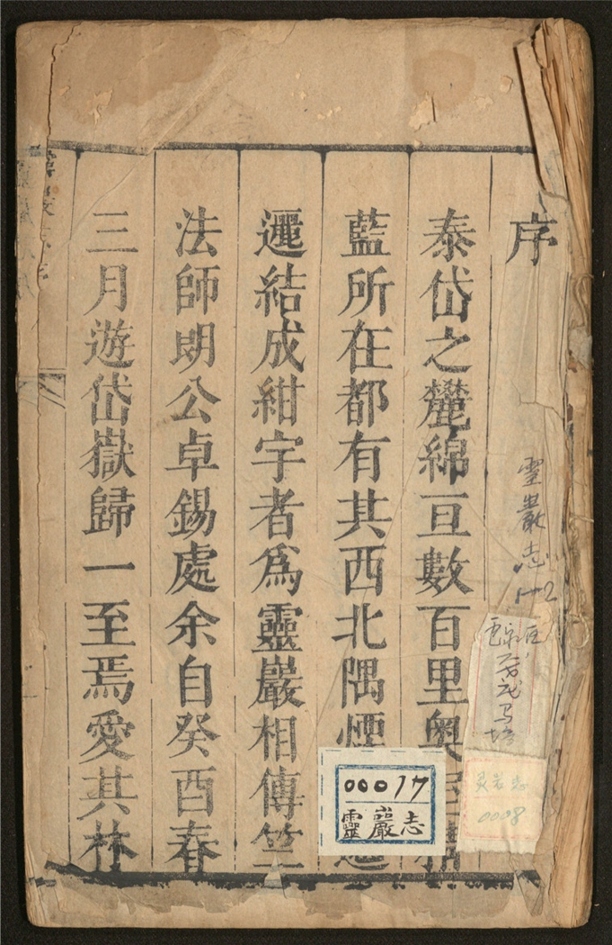 序
靈巖志 1-2
泰岱之麓綿亘數百里奧
藍所在都有其西北隅煙
邐結成紺宇者爲靈巖相傳竺
法師朗公卓錫處余自癸酉春
三月遊岱嶽歸一至焉愛其林
00017
靈巖志
灵岩志
0008